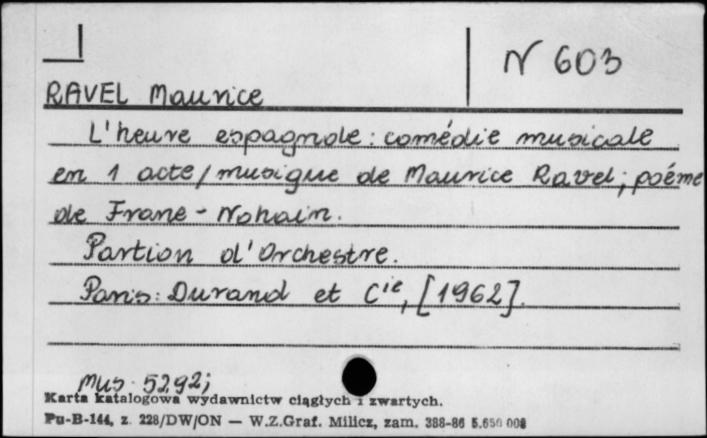 N 603
RAVEL Maurice
L'heure espagnole : comédie musicale
en 1 acte / musique de Maurice Ravel ; poéme
de Franc - Nohain.
Partion d'Orchestre.
Paris : Durand et Cie, [1962].
Mus 5292;
Karta katalogowa wydawnictw ciągłych i zwartych.
Pu-B-144, z. 228/DW/ON — W.Z.Graf. Milicz, zam. 388-86 5.650 008